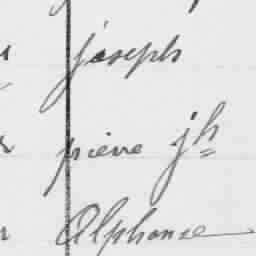 joseph
pierre jh
Alphonse